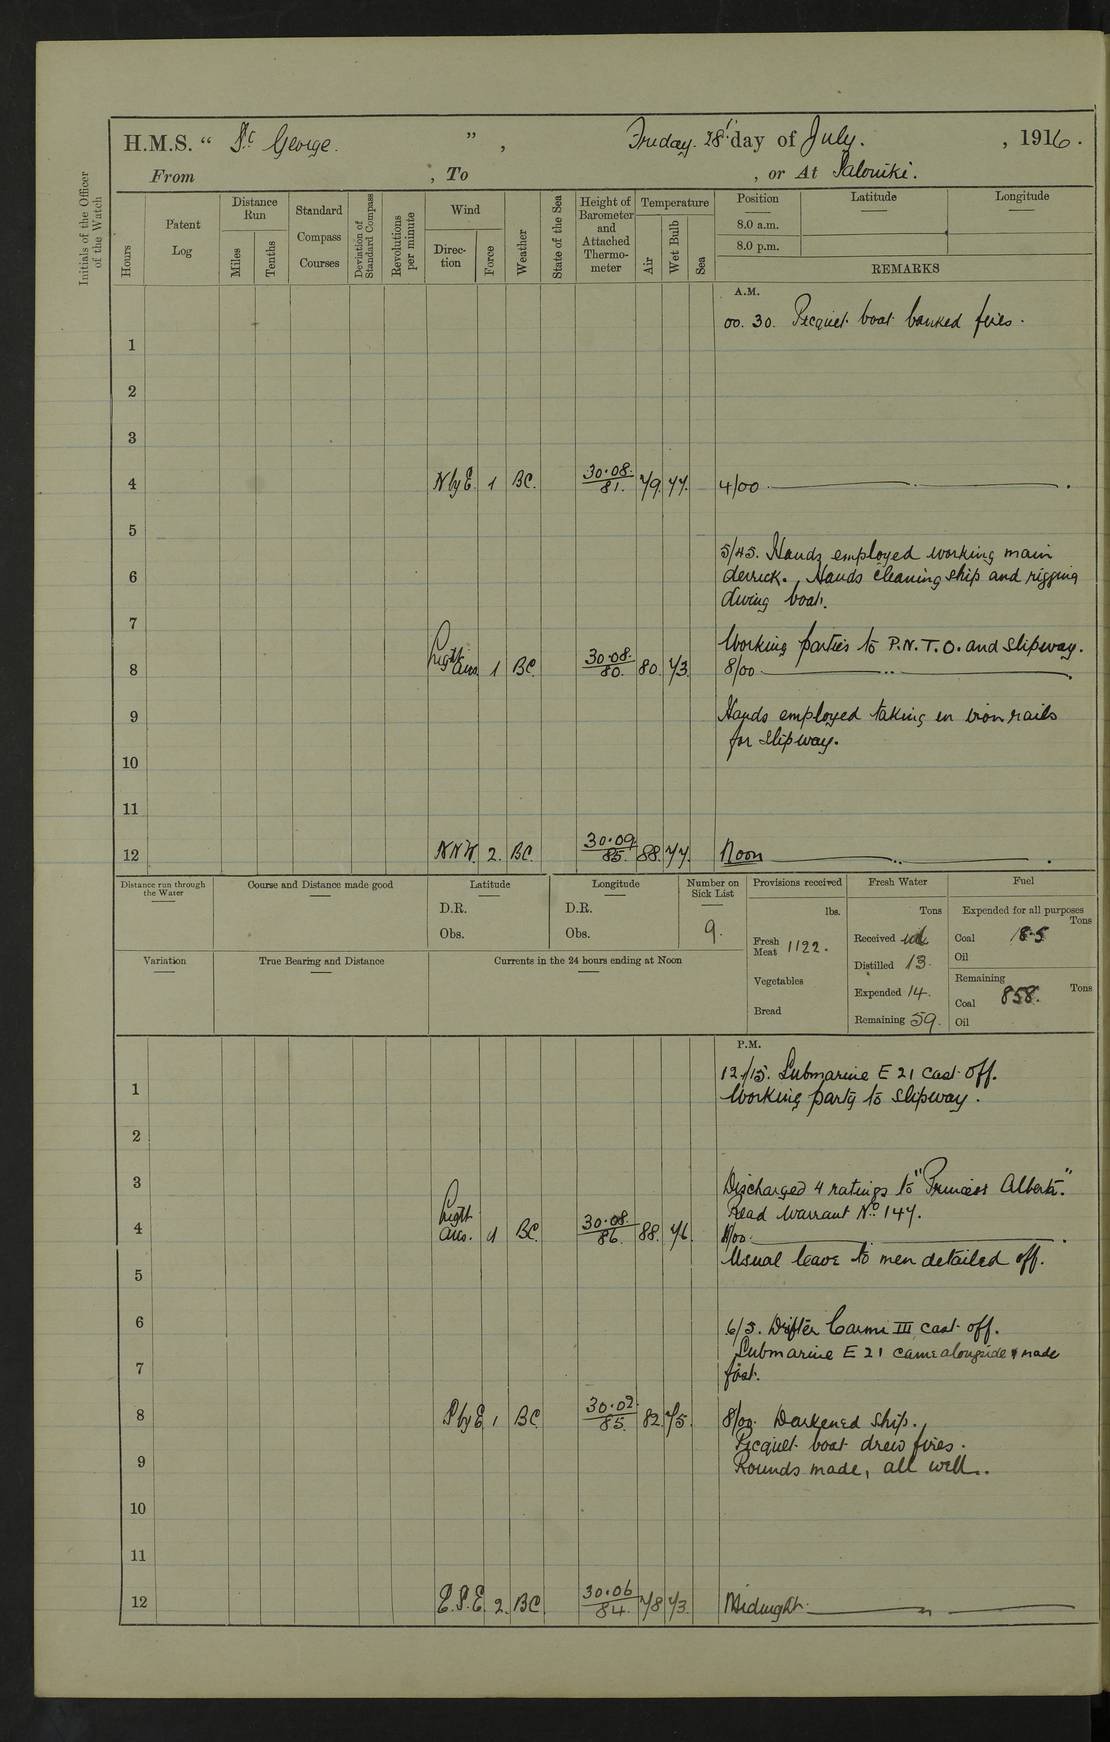 H.M.S. “ St George. ”, Friday. 28th day of July. , 1916.
From , To , or At Salonika.
Initials of the Officer of the Watch
Hours
Patent Log
Distance Run
Miles
Tenths
Standard Compass Courses
Deviation of Standard Compass
Revolutions per minute
Wind
Direction
Force
Weather
State of the Sea
Height of Barometer and Attached Thermometer
Temperature
Air
Wet Bulb
Sea
Position
8.0 a.m.
8.0 p.m.
Latitude
Longitude
REMARKS
A.M.
00. 30. Picquet boat banked fires.
1
2
3
4 N by E. 1 BC. 30.08. 81. 79. 77. 4/00
5
5/45. Hands employed working main
6 derrick., Hands cleaning ship and rigging
diving boat.
7
Working parties to P.N.T.O. and slipway.
8 Light airs 1 BC. 30.08. 80. 80. 73. 8/00
9 Hands employed taking in iron rails
for slipway.
10
11
12 NNW. 2. BC. 30.09. 85. 88. 77. Noon
Distance run through the Water
Course and Distance made good
Latitude
D.R.
Obs.
Longitude
D.R.
Obs.
Number on Sick List
9.
Provisions received
lbs.
Fresh Meat 1122.
Vegetables
Bread
Fresh Water
Tons
Received nil
Distilled 13.
Expended 14.
Remaining 59.
Fuel
Expended for all purposes
Tons
Coal 18.5
Oil
Remaining
Tons
Coal 858.
Oil
Variation
True Bearing and Distance
Currents in the 24 hours ending at Noon
P.M.
12/15. Submarine E 21 cast off.
1 Working party to slipway.
2
3 Discharged 4 ratings to "Princess Alberta."
Read Warrant No. 147.
4 Light airs. 1 BC. 30.08. 86. 88. 76. 4/00.
Usual leave to men detailed off.
5
6 6/5. Drifter Carmi III cast off.
Submarine E 21 came alongside & made
7 fast.
8 S by E. 1 BC. 30.02. 85. 82. 75. 8/00. Darkened ship.
Picquet boat drew fires.
9 Rounds made, all well.
10
11
12 E.S.E. 2. BC. 30.06 84. 78. 73. Midnight.